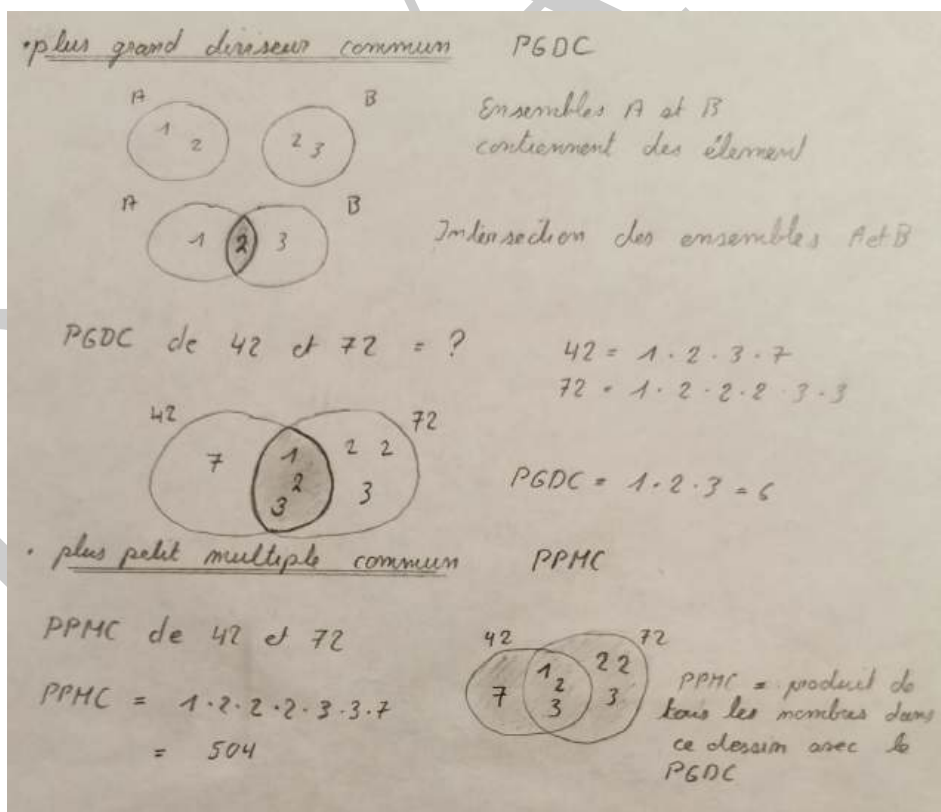 • plus grand diviseur commun PGDC
A B
1 2 2 3
Ensembles A et B
contiennent des élement
A B
1 2 3
Intersection des ensembles A et B
PGDC de 42 et 72 = ?
42 = 1 · 2 · 3 · 7
72 = 1 · 2 · 2 · 2 · 3 · 3
42 72
7 1 2 3 2 2 3
PGDC = 1 · 2 · 3 = 6
• plus petit multiple commun PPMC
PPMC de 42 et 72
PPMC = 1 · 2 · 2 · 2 · 3 · 3 · 7
= 504
42 72
7 1 2 3 2 2 3
PPMC = produit de
tous les nombres dans
ce dessin avec le
PGDC